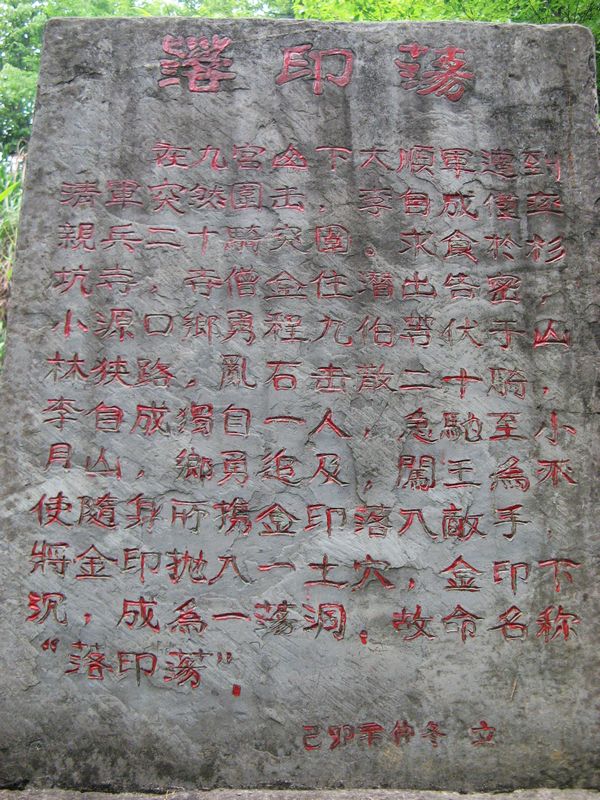 落印荡
在九宫山下大順軍遭到
清軍突然圍击，李自成僅率
親兵二十騎突圍。求食於杉
坑寺，寺僧金住潜出告密，
小源口鄉勇程九伯等伏于山
林狭路，亂石击散二十騎，
李自成獨自一人，急馳至小
月山，鄉勇追及，闖王為不
使隨身所携金印落入敵手，
將金印抛入一土穴，金印下
沉，成為一荡洞，故命名称
“落印荡”。
己卯年仲冬 立